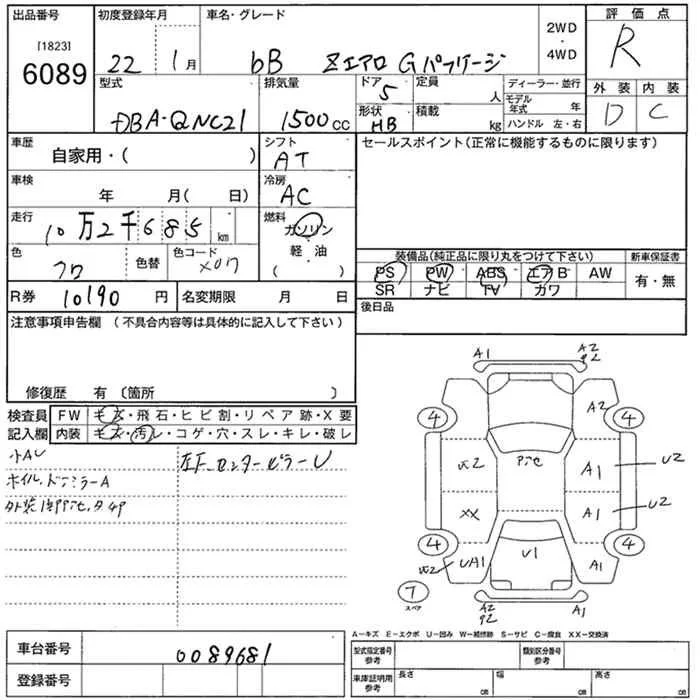 出品番号
[1823]
6089
初度登録年月
22 1月
車名・グレード
bB ZエアロGパッケージ
2WD
・
4WD
評価点
R
外装 内装
D C
型式
DBA-QNC21
排気量
1500cc
ドア
5
形状
HB
定員
人
積載
kg
ディーラー・並行
モデル年式 年
ハンドル 左・右
車歴
自家用・( )
シフト
AT
セールスポイント(正常に機能するものに限ります)
車検
年 月( 日)
冷房
AC
走行
10万2千685km
燃料
ガソリン
軽・油
( )
色
クロ
色替
色コード
X07
装備品(純正品に限り丸をつけて下さい)
新車保証書
PS PW ABS エアB AW
SR ナビ TV カワ
有・無
R券
10190円
名変期限 月 日
後日品
注意事項申告欄(不具合内容等は具体的に記入して下さい)
修復歴 有〔箇所 〕
検査員
記入欄
FW キズ・飛石・ヒビ割・リペア跡・X要
内装 キズ・汚レ・コゲ・穴・スレ・キレ・破レ
小AU
ホイル、ドアミラーA
左F センターピラーU
A1
A2
P2
4
A2
4
U2
A1
U2
XX
A1
U2
4
U2
UA1
U1
A1
4
7
スペア
A2
P2
A1
A-キズ E-エクボ U-凹み W-補修跡 S-サビ C-腐食 XX-交換済
車台番号
0089681
登録番号
型式指定番号
参考
類別区分番号
参考
車庫証明用
参考
長さ cm
幅 cm
高さ cm